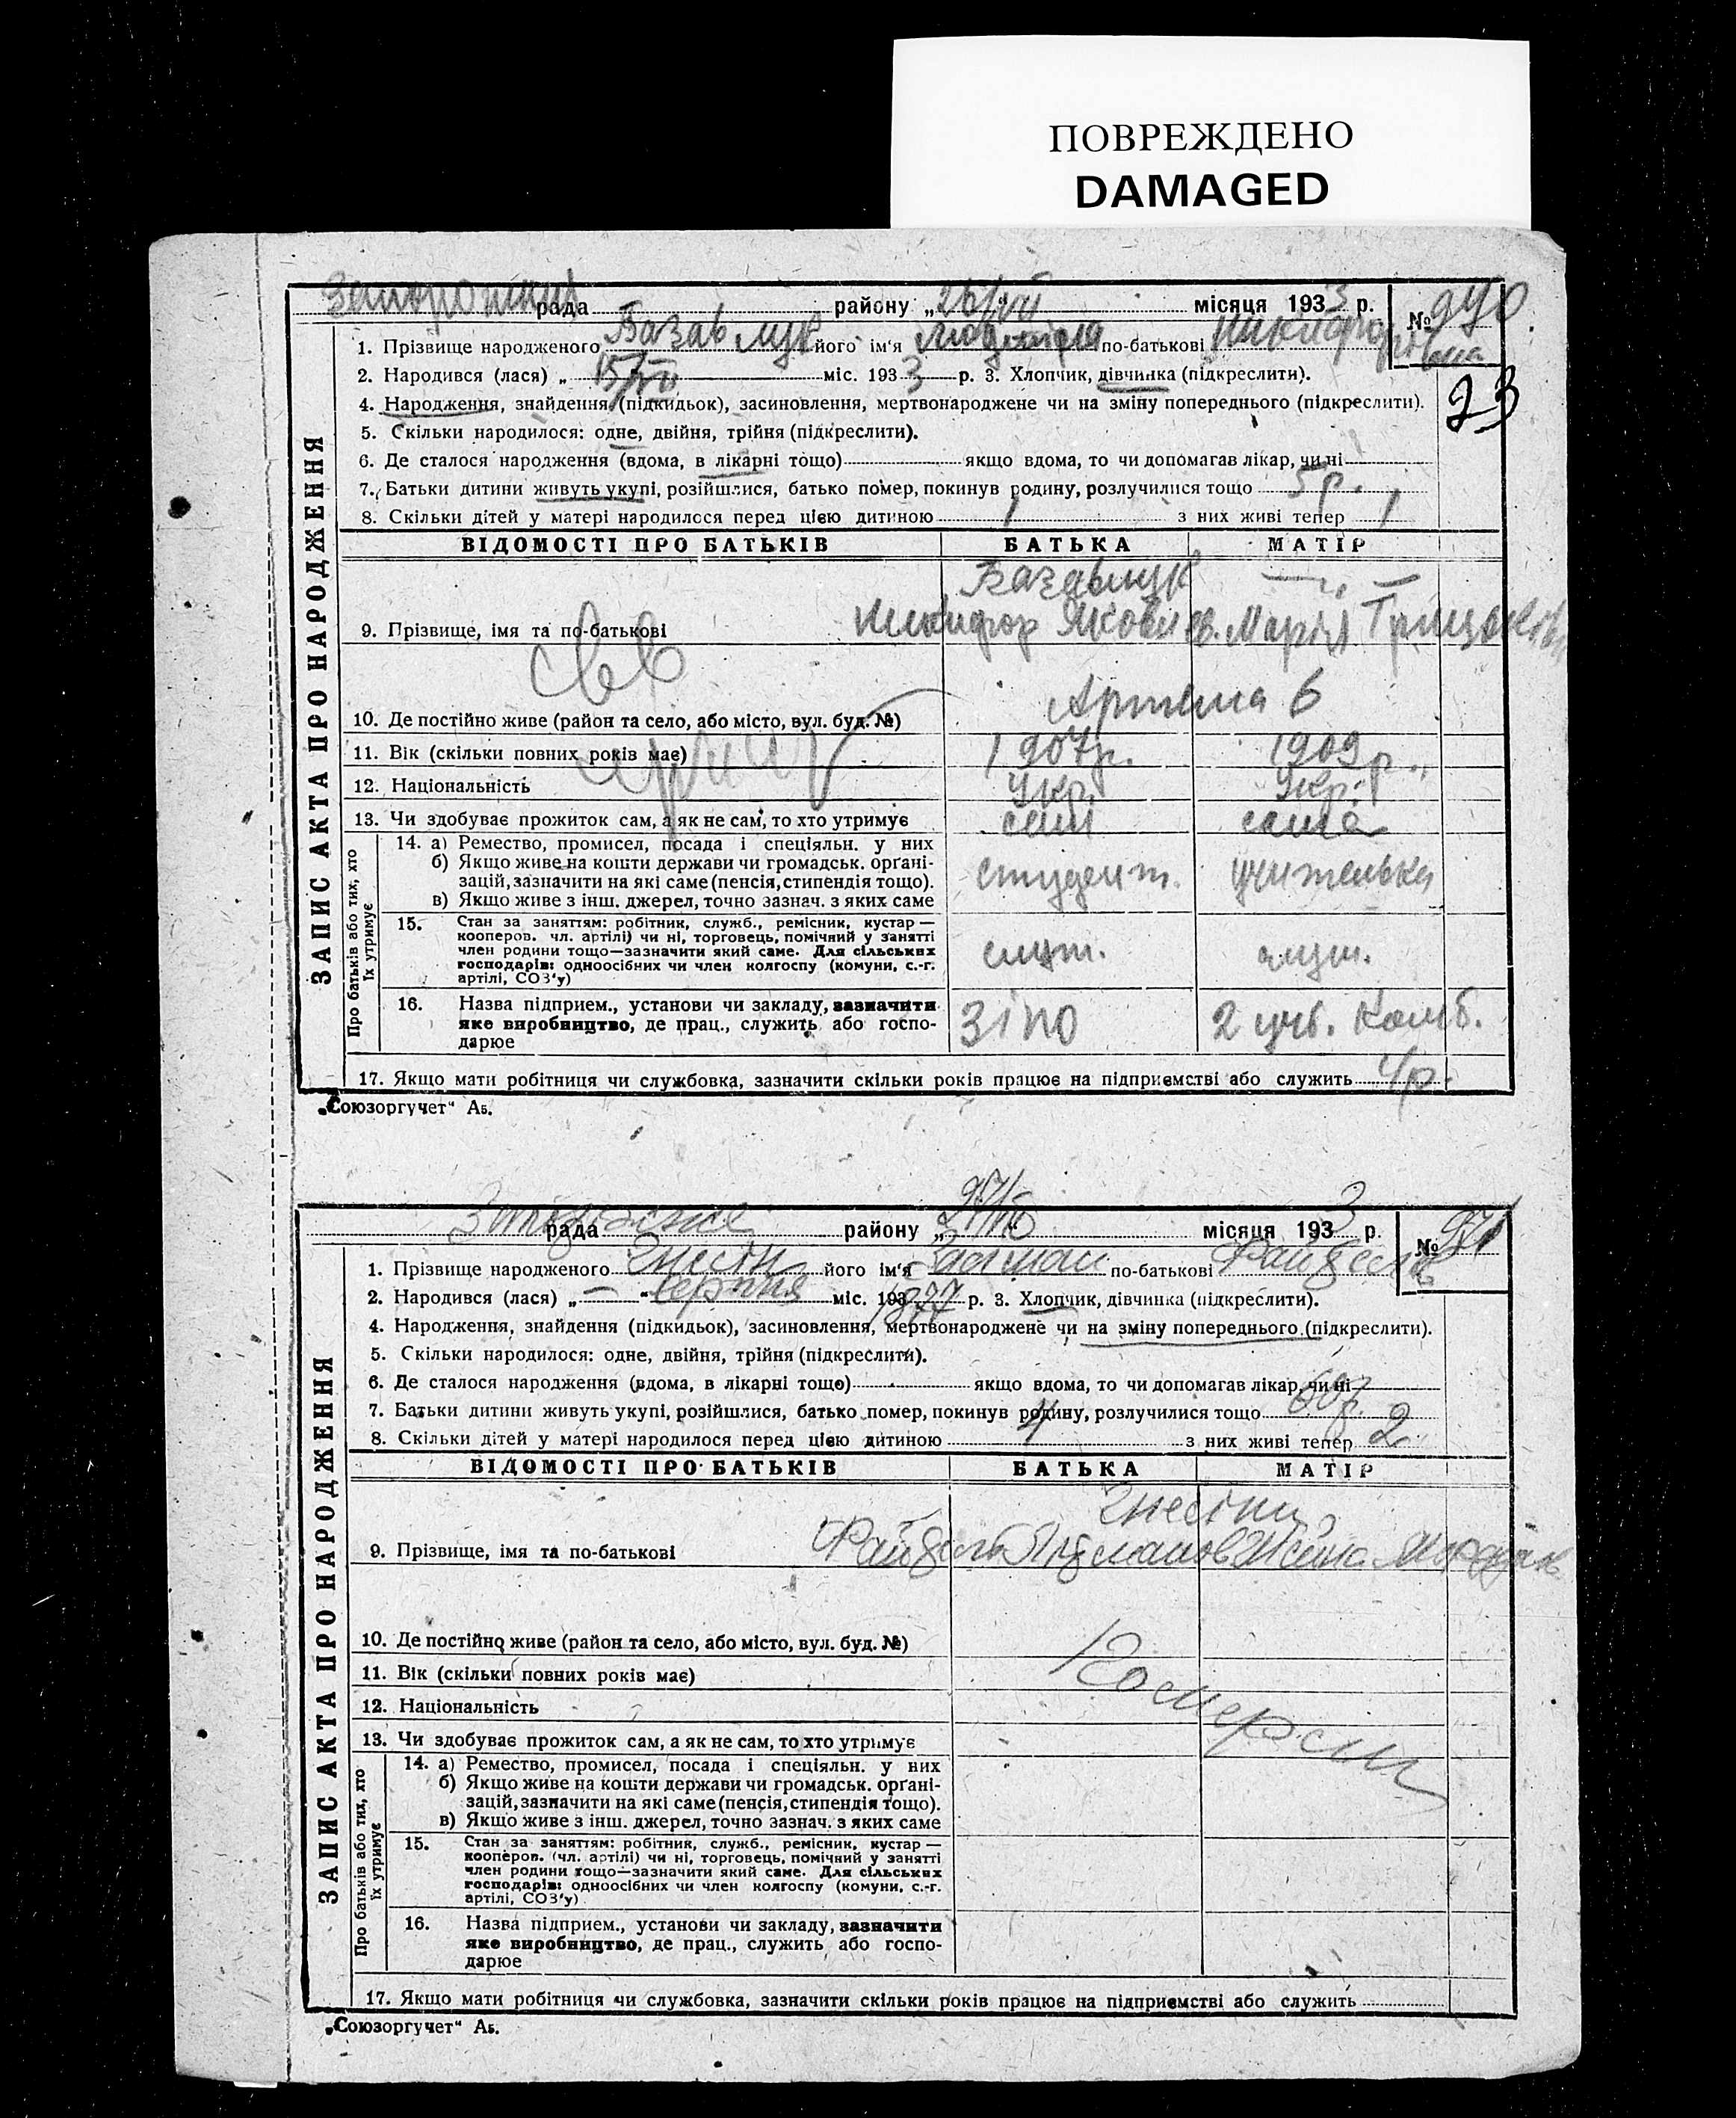 ПОВРЕЖДЕНО
DAMAGED
рада району „26/VII“ місяця 1933 р. № 970
1. Прізвище народженого Базавлук його ім'я по-батькові
2. Народився (лася) „ міс. 1933 р. 3. Хлопчик, дівчинка (підкреслити).
23
4. Народження, знайдення (підкидьок), засиновлення, мертвонароджене чи на зміну попереднього (підкреслити).
5. Скільки народилося: одне, двійня, трійня (підкреслити).
6. Де сталося народження (вдома, в лікарні тощо) якщо вдома, то чи допомагав лікар, чи ні
7. Батьки дитини живуть укупі, розійшлися, батько помер, покинув родину, розлучилися тощо 5 р.
8. Скільки дітей у матері народилося перед цією дитиною 1 з них живі тепер 1
ЗАПИС АКТА ПРО НАРОДЖЕННЯ
ВІДОМОСТІ ПРО БАТЬКІВ БАТЬКА МАТІР
Базавлук — „ —
9. Прізвище, імя та по-батькові Яковлев. Марія
10. Де постійно живе (район та село, або місто, вул. буд. №) Артема 6
11. Вік (скільки повних років має) 1907р. 1909р.
12. Національність Укр. Укр.
13. Чи здобуває прожиток сам, а як не сам, то хто утримує сам сама
Про батьків або тих, хто їх утримує
14. а) Ремество, промисел, посада і спеціяльн. у них
б) Якщо живе на кошти держави чи громадськ. орґані-
зацій, зазначити на які саме (пенсія, стипендія тощо). студент. учителька
в) Якщо живе з інш. джерел, точно зазнач. з яких саме
15. Стан за заняттям: робітник, служб., ремісник, кустар—
кооперов. чл. артілі) чи ні, торговець, помічний у занятті
член родини тощо—зазначити який саме. Для сільських
господарів: одноосібних чи член колгоспу (комуни, с.-г.
артілі, СОЗ'у) служ. служ.
16. Назва підприєм., установи чи закладу, зазначити
яке виробництво, де прац., служить або госпо-
дарює ЗІПО 2 учб. Комб.
17. Якщо мати робітниця чи службовка, зазначити скільки років працює на підприємстві або служить 4р.
„Союзоргучет“ Аб.
рада району „ місяця 1933 р. № 971
1. Прізвище народженого Гнесін його ім'я Залман по-батькові
2. Народився (лася) „—“ серпня міс. 1877 р. 3. Хлопчик, дівчинка (підкреслити).
4. Народження, знайдення (підкидьок), засиновлення, мертвонароджене чи на зміну попереднього (підкреслити).
5. Скільки народилося: одне, двійня, трійня (підкреслити).
6. Де сталося народження (вдома, в лікарні тощо) якщо вдома, то чи допомагав лікар, чи ні
7. Батьки дитини живуть укупі, розійшлися, батько помер, покинув родину, розлучилися тощо
8. Скільки дітей у матері народилося перед цією дитиною 4 з них живі тепер 2
ЗАПИС АКТА ПРО НАРОДЖЕННЯ
ВІДОМОСТІ ПРО БАТЬКІВ БАТЬКА МАТІР
Гнесіни
9. Прізвище, імя та по-батькові
10. Де постійно живе (район та село, або місто, вул. буд. №)
11. Вік (скільки повних років має)
12. Національність
13. Чи здобуває прожиток сам, а як не сам, то хто утримує
Про батьків або тих, хто їх утримує
14. а) Ремество, промисел, посада і спеціяльн. у них
б) Якщо живе на кошти держави чи громадськ. орґані-
зацій, зазначити на які саме (пенсія, стипендія тощо).
в) Якщо живе з інш. джерел, точно зазнач. з яких саме
15. Стан за заняттям: робітник, служб., ремісник, кустар—
кооперов. (чл. артілі) чи ні, торговець, помічний у занятті
член родини тощо—зазначити який саме. Для сільських
господарів: одноосібних чи член колгоспу (комуни, с.-г.
артілі, СОЗ'у)
16. Назва підприєм., установи чи закладу, зазначити
яке виробництво, де прац., служить або госпо-
дарює
17. Якщо мати робітниця чи службовка, зазначити скільки років працює на підприємстві або служить
„Союзоргучет“ Аб.